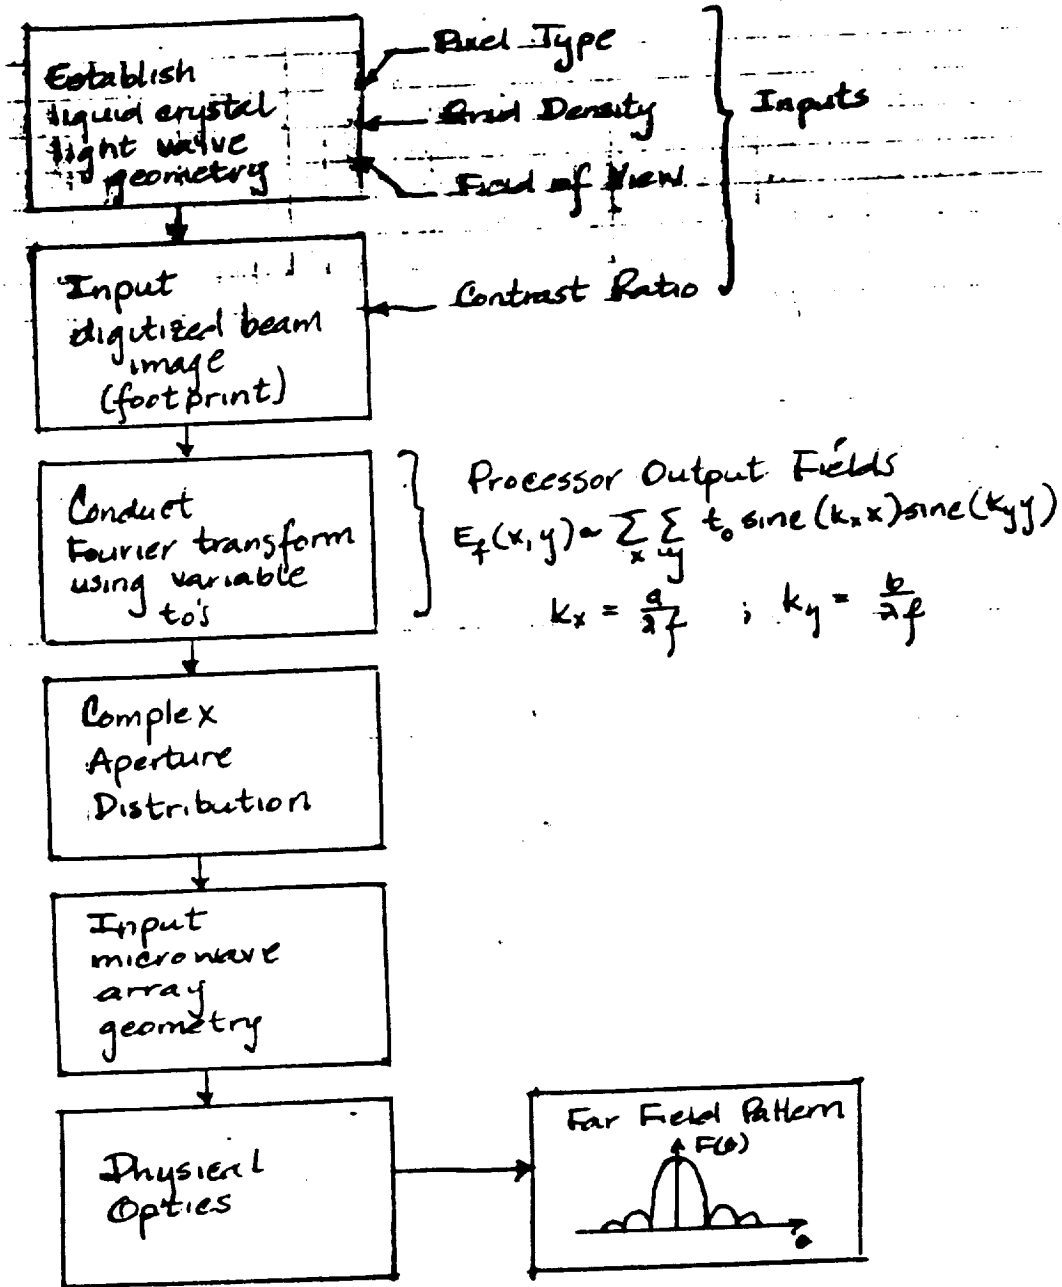 Establish
liquid crystal
light valve
geometry
Pixel Type
Grid Density
Field of View
Inputs
Input
digitized beam
image
(footprint)
Contrast Ratio
Conduct
Fourier transform
using variable
to's
Processor Output Fields
E_f(x,y) ~ Σ_x Σ_y t_o sinc(k_x x) sinc(k_y y)
k_x = a/λf ; k_y = b/λf
Complex
Aperture
Distribution
Input
microwave
array
geometry
Physical
Optics
Far Field Pattern
F(θ)
θ